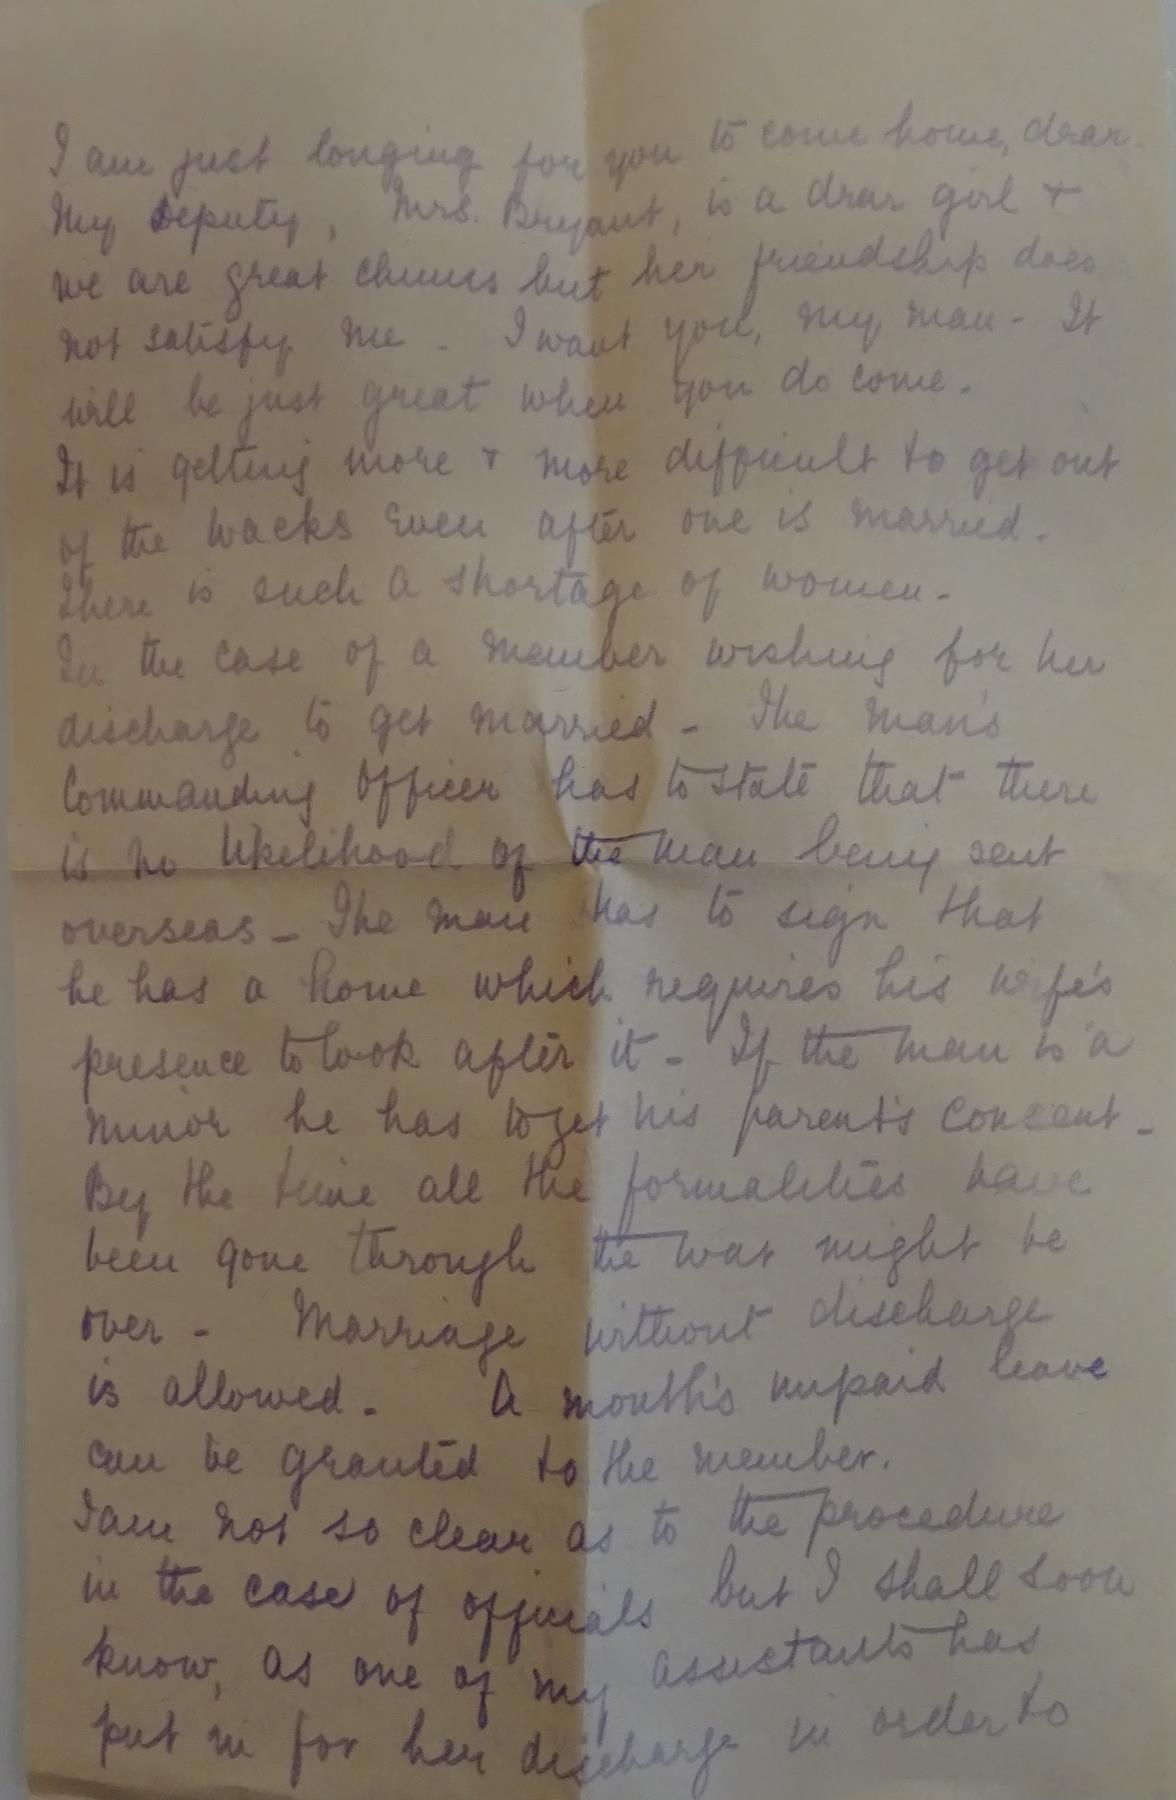 I am just longing for you to come home, dear.
My Deputy, Mrs. Bryant, is a dear girl +
we are great chums but her friendship does
not satisfy me - I want you, my man - It
will be just great when you do come.
It is getting more + more difficult to get out
of the Wacks even after one is married.
There is such a shortage of women.
In the case of a member wishing for her
discharge to get married - The man's
Commanding Officer has to state that there
is no likelihood of the man being sent
overseas - The man has to sign that
he has a home which requires his wife's
presence to look after it - If the man is a
minor he has to get his parent's consent -
By the time all the formalities have
been gone through the war might be
over - Marriage without discharge
is allowed - A month's unpaid leave
can be granted to the member.
I am not so clear as to the procedure
in the case of officials but I shall soon
know, as one of my assistants has
put in for her discharge in order to